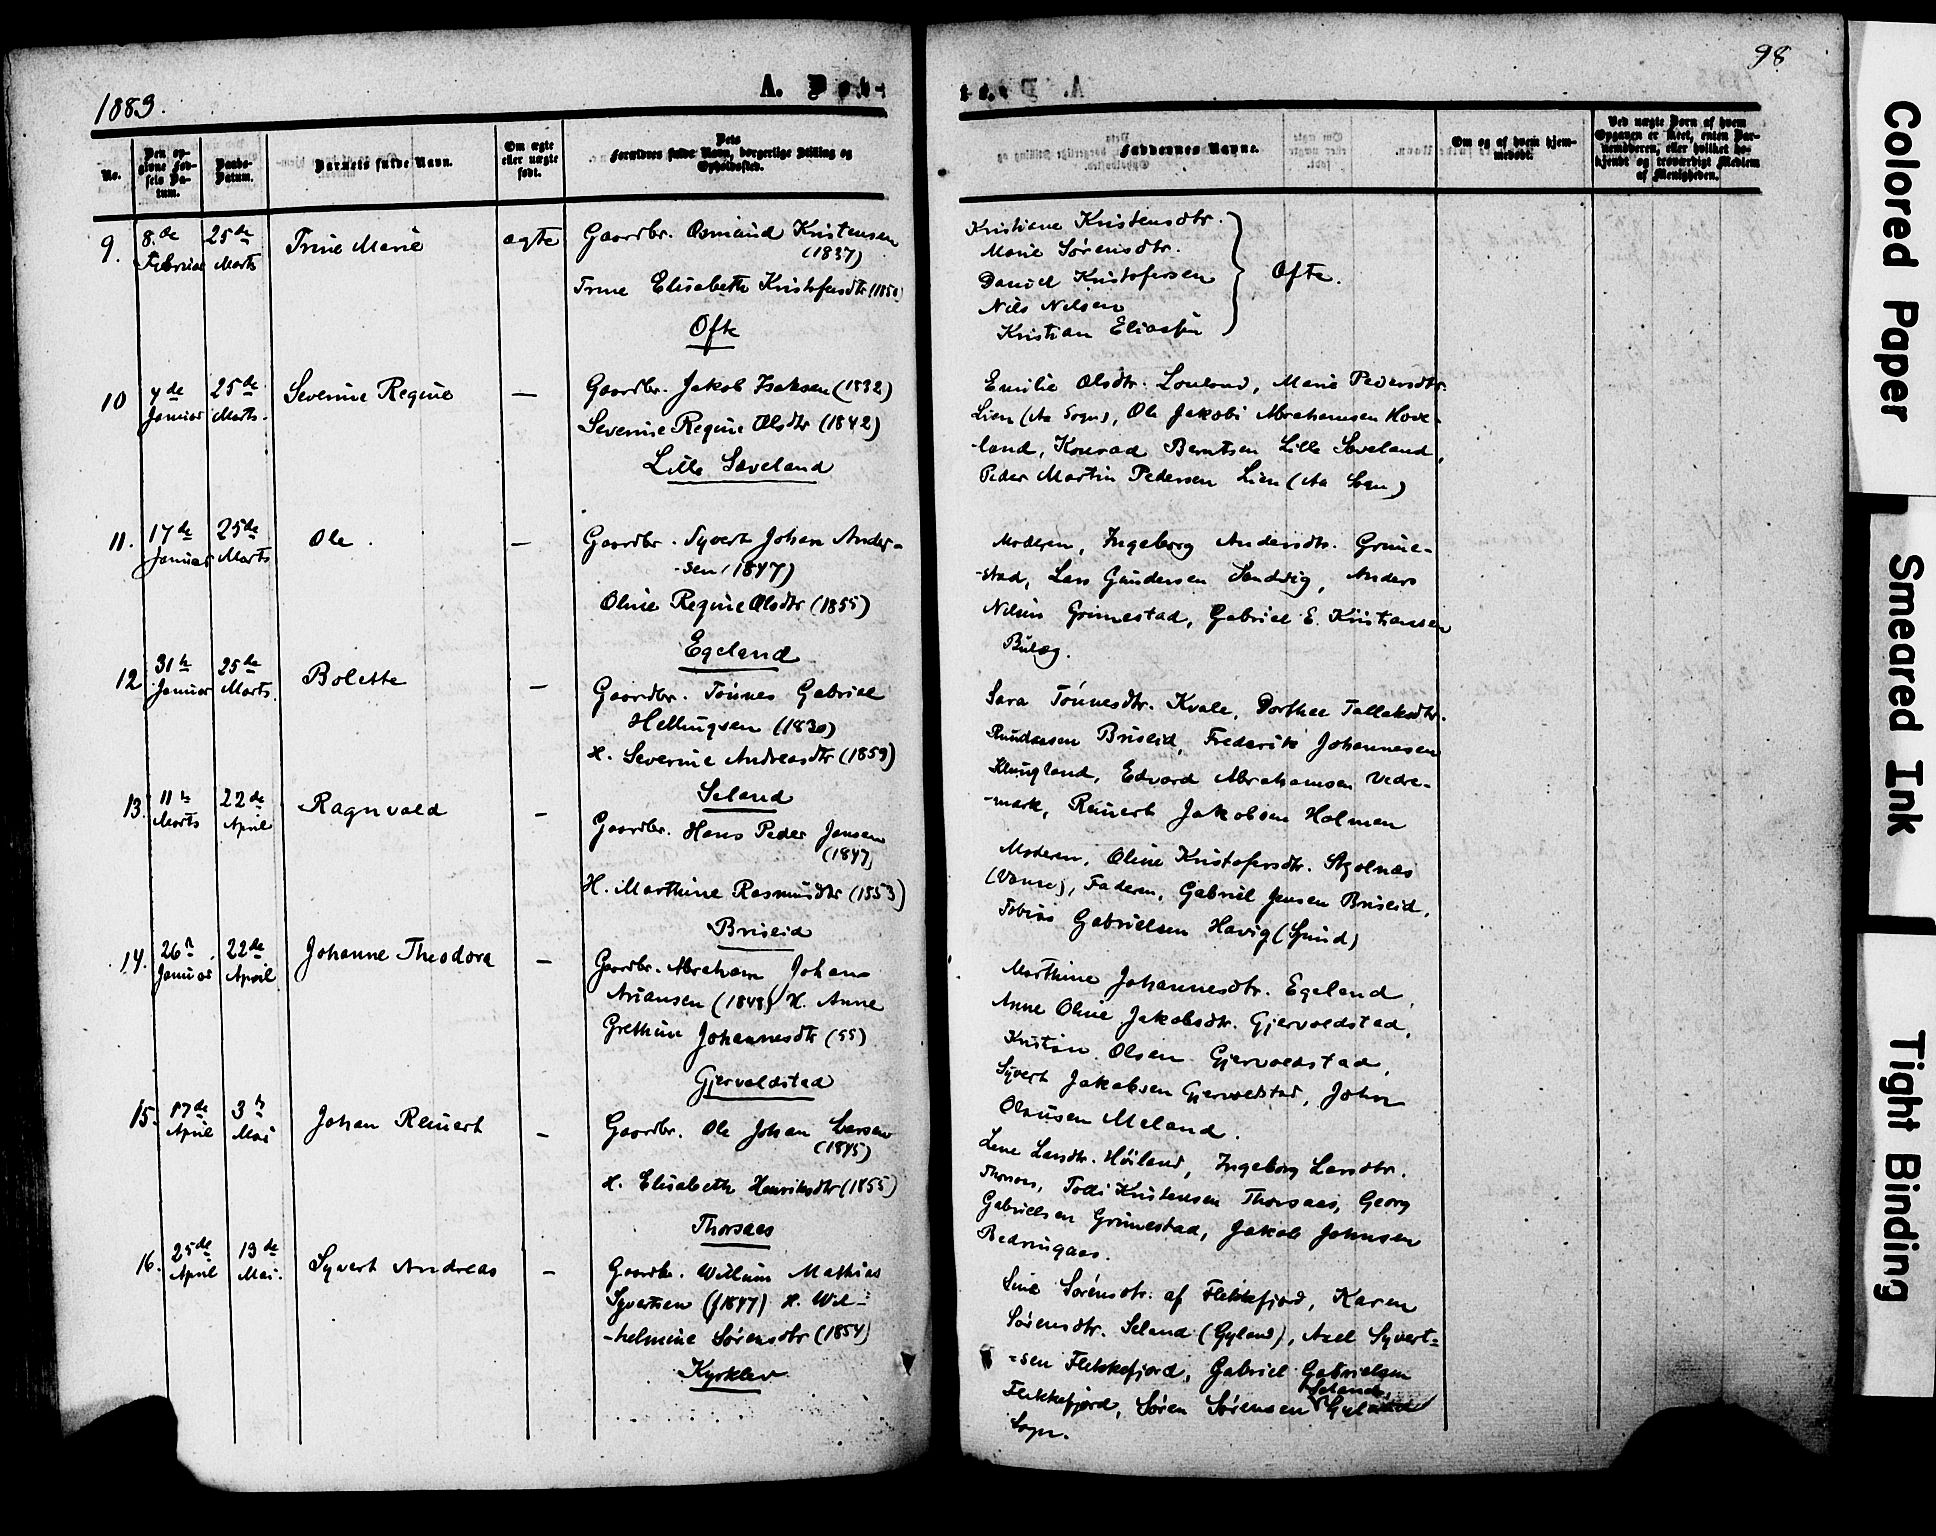 98
1883.
A.
No.
Den opgivne Fødsels Datum.
Daabs-Datum.
Barnets fulde Navn.
Om ægte eller uægte født.
Dets Forældres fulde Navn, borgerlige Stilling og Opholdssted.
Faddernes Navne.
Om og af hvem hjemmedøbt.
Ved uægte Børn af hvem Opgaven er skeet, enten Barnemoderen, eller hvilket bekjendt og troværdigt Medlem af Menigheden.
9. 8.de Februar 25de Marts Trine Marie ægte Gaardbr. Osmund Kristensen
(1837)
Trine Elisabeth Kristofersdtr (1850)
Ofte
Kristiane Kristensdtr.
Marie Sørensdtr.
Daniel Kristofersen
Nils Nilsen
Kristian Eliassen
Ofte.
10 7de Januar 25de Marts. Severine Regine — Gaardbr. Jakob Isaksen (1832)
Severine Regine Olsdtr (1842)
Lille Sæveland
Emilie Olsdtr. Louland, Marie Pedersdtr.
Lien (Aa Sogn), Ole Jakobi Abrahamsen Hove-
-land, Konrad Berntsen Lille Sæveland,
Peder Martin Pedersen Lien (Aa Sogn)
11. 17de Januar 25de Marts Ole. — Gaardbr. Syvert Johan Ander-
-sen (1847)
Oline Regine Olsdtr (1855)
Egeland
Moderen, Ingeborg Andersdtr. Grime-
-stad, Lars Gundersen Sandvig, Anders
Nilsen Grimestad, Gabriel E. Kristiansen
Bulæg.
12 31te Januar 25de Marts. Bolette — Gaardbr. Tønnes Gabriel
Hellingsen (1830)
H. Severine Andreasdtr (1859)
Seland
Sara Tønnesdtr. Kvale, Dorthee Tallaksdtr.
Briseid, Frederik Johannesen
Klungland, Edvard Abrahamsen Vedre-
-mark, Reinert Jakobsen Holmen
13. 11te Marts 22de April Ragnvald — Gaardbr. Hans Peder Jensen
(1847)
H. Marthine Rasmusdtr (1853)
Briseid
Moderen, Oline Kristofersdtr.
(Vanse), Faderen, Gabriel Jensen Briseid,
Tobias Gabrielsen Havig (Spind)
14. 26de Januar 22de April Johanne Theodora — Gaardbr. Abraham Johan
Ariansen (1848) H. Anne
Grethine Johannesdtr (55)
Gjervoldstad
Marthine Johannesdtr. Egeland,
Anne Oline Jakobsdtr. Gjervoldstad,
Kristian Olsen Gjervoldstad,
Syvert Jakobsen Gjervoldstad, John
Olausen Meland.
15. 17de April 3de Mai Johan Reinert — Gaardbr. Ole Johan Larsen
(1845)
H. Elisabeth Henriksdtr (1855)
Thorsaas
Lene Larsdtr. Høiland, Ingeborg Larsdtr.
Thorsaas, Kristensen Thorsaas, Georg
Gabrielsen Grimestad, Jakob Johnsen
Bedringaas.
16. 25de April 13de Mai. Syvert Andreas — Gaardbr. William Mathias
Syvertsen (1847) H. Wil-
-helmine Sørensdtr (1854)
Kyrklev
Sine Sørensdtr. af Flekkefjord, Karen
Sørensdtr. Seland (Gyland), Axel Syvert-
-sen Flekkefjord, Gabriel Gabrielsen
Flekkefjord, Søren Sørensen Seland, Gyland
Sogn.
Colored Paper
Smeared Ink
Tight Binding